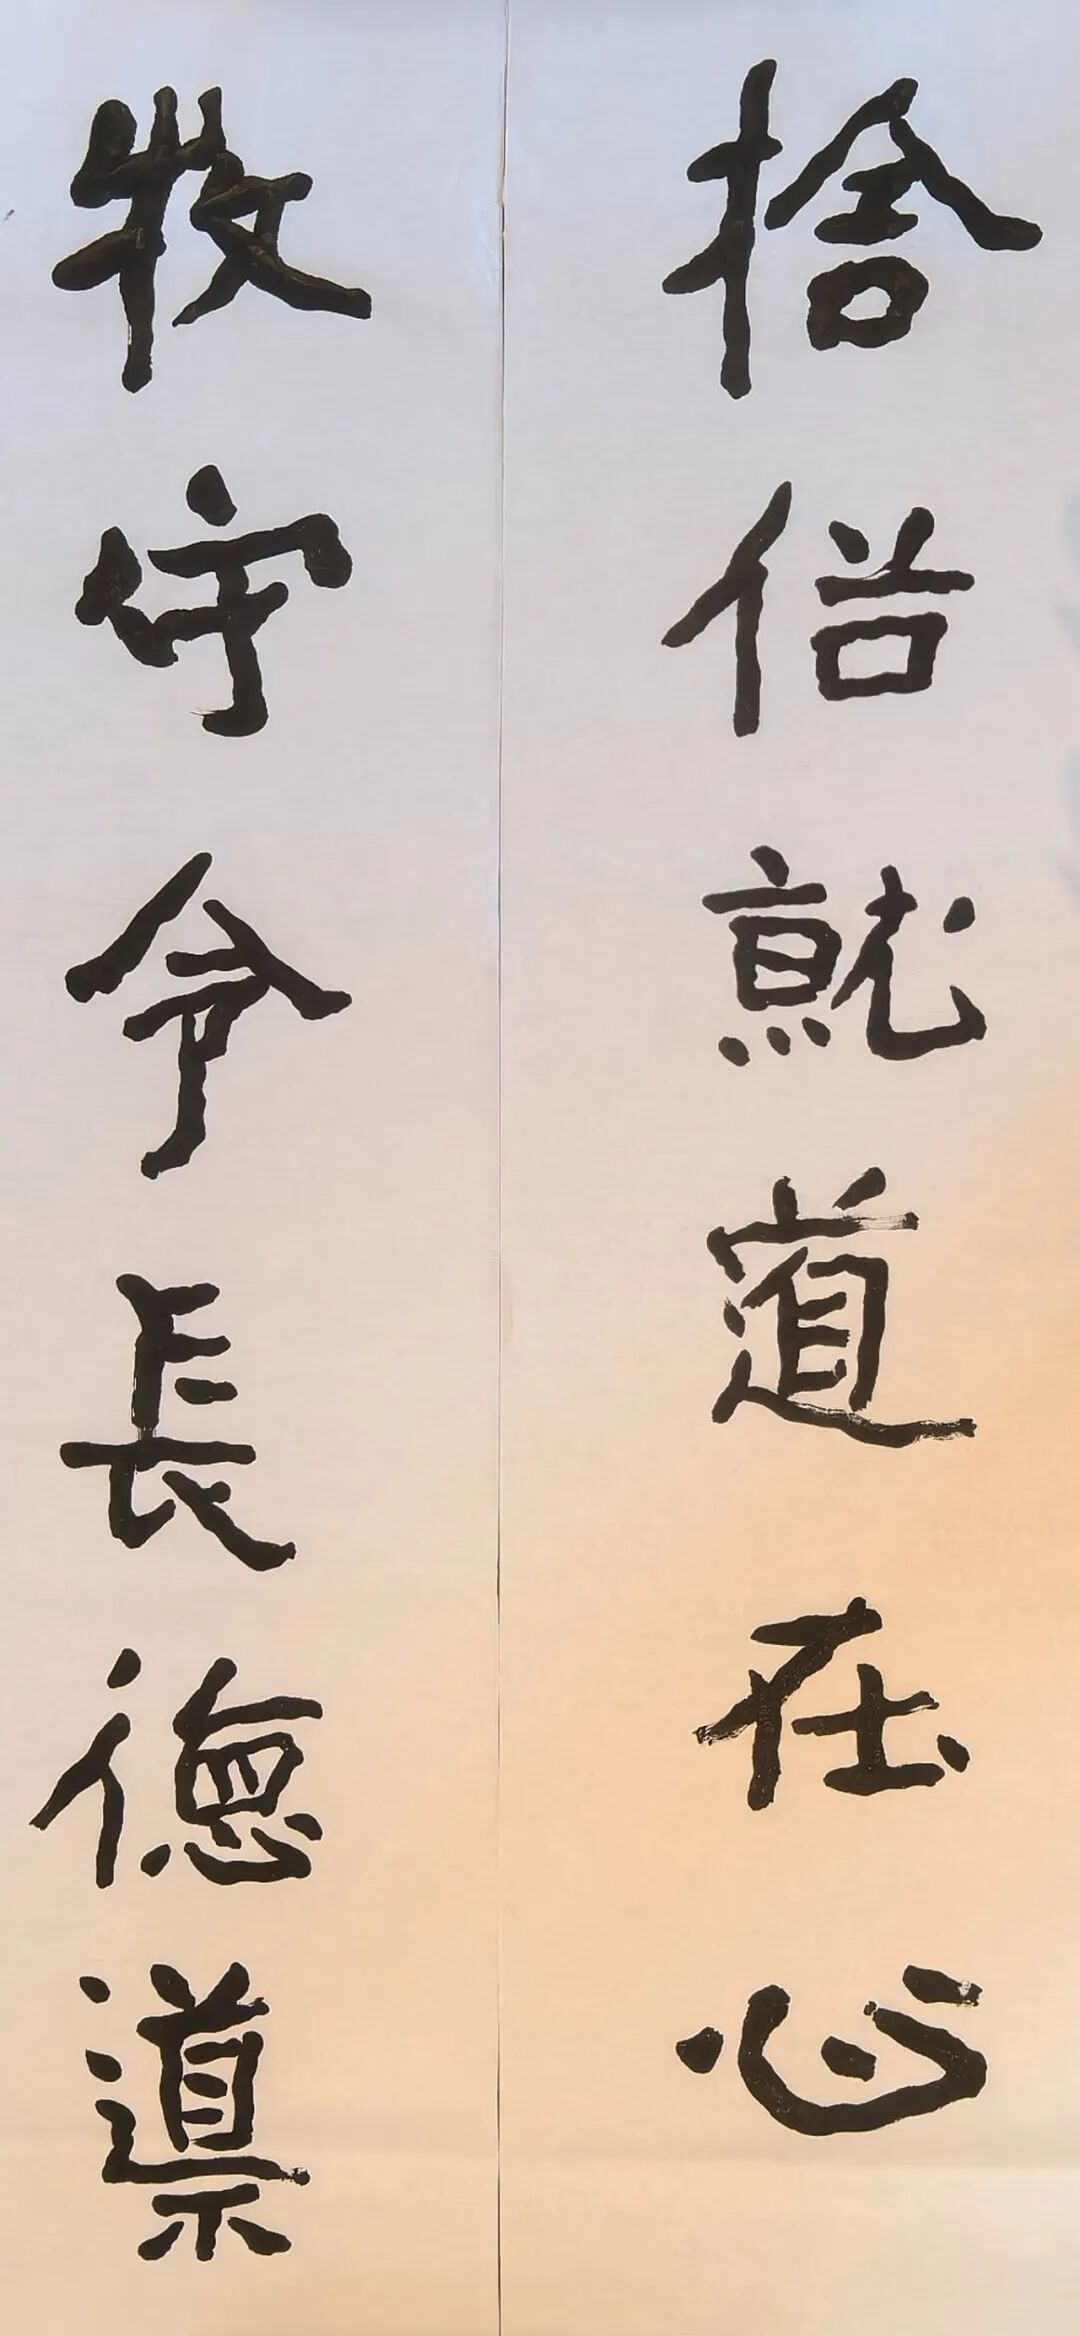 捨俗就道在心
牧守令長徳導